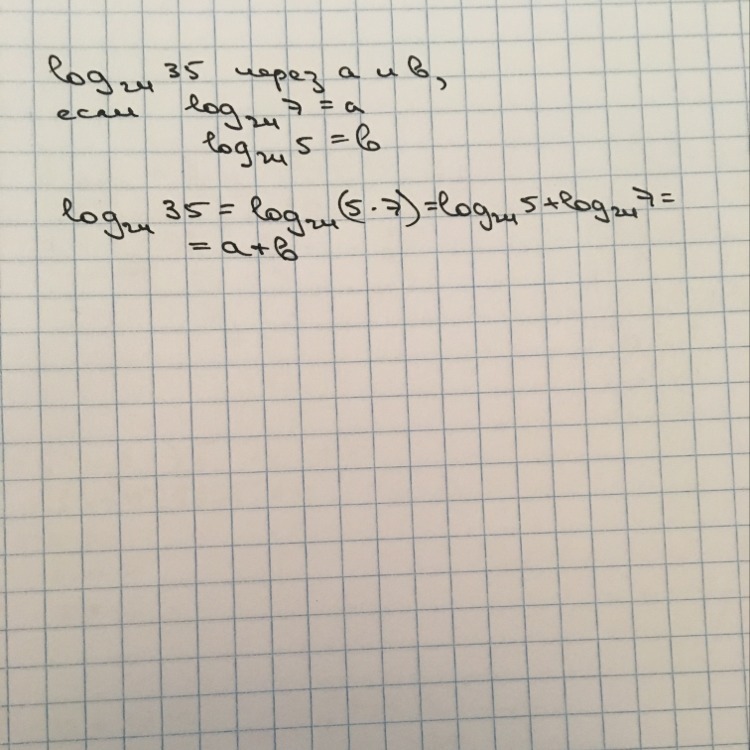 log₂₄ 35 через a и b,
если log₂₄ 7 = a
log₂₄ 5 = b
log₂₄ 35 = log₂₄(5·7) = log₂₄ 5 + log₂₄ 7 =
= a + b